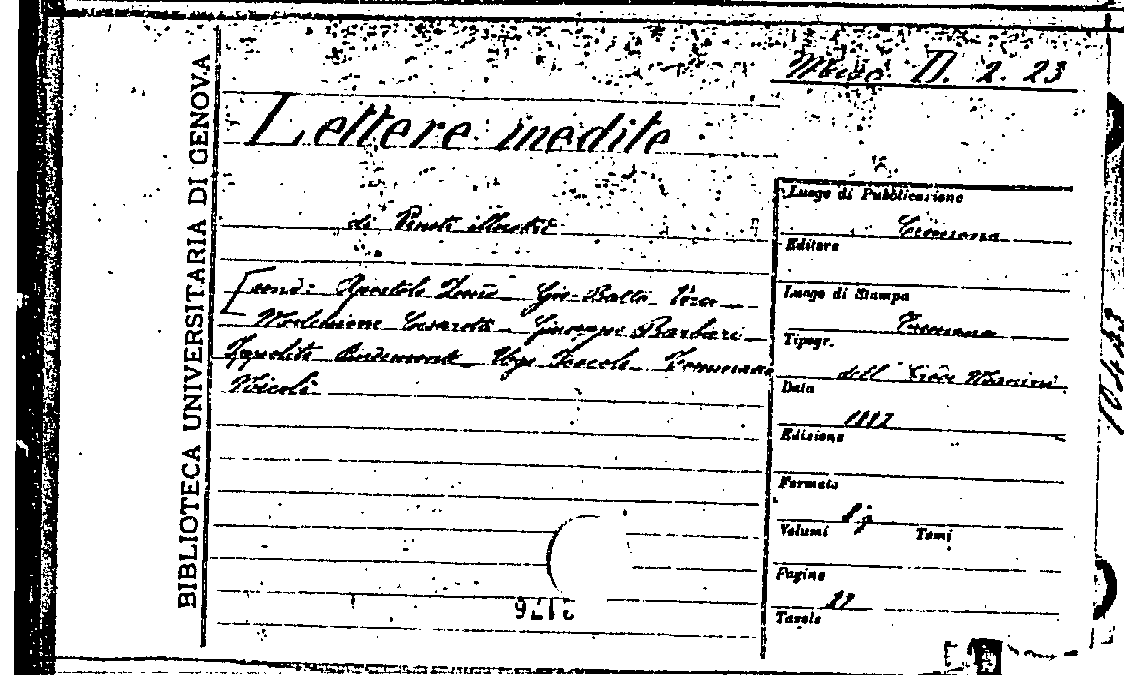 BIBLIOTECA UNIVERSITARIA DI GENOVA
Misc. D. 2. 23
Lettere inedite
di Veneti illustri
[sono: Apostolo Zeno Gio. Batta
Melchiorre Cesarotti Giuseppe Barbieri
Ippolito Pindemonte Ugo Foscolo Tommaso
Luogo di Pubblicazione
Cremona
Editore
Luogo di Stampa
Cremona
Tipogr.
Data
Edizione
Formato
8°
Volumi Tomi
Pagine
Tavole
2176